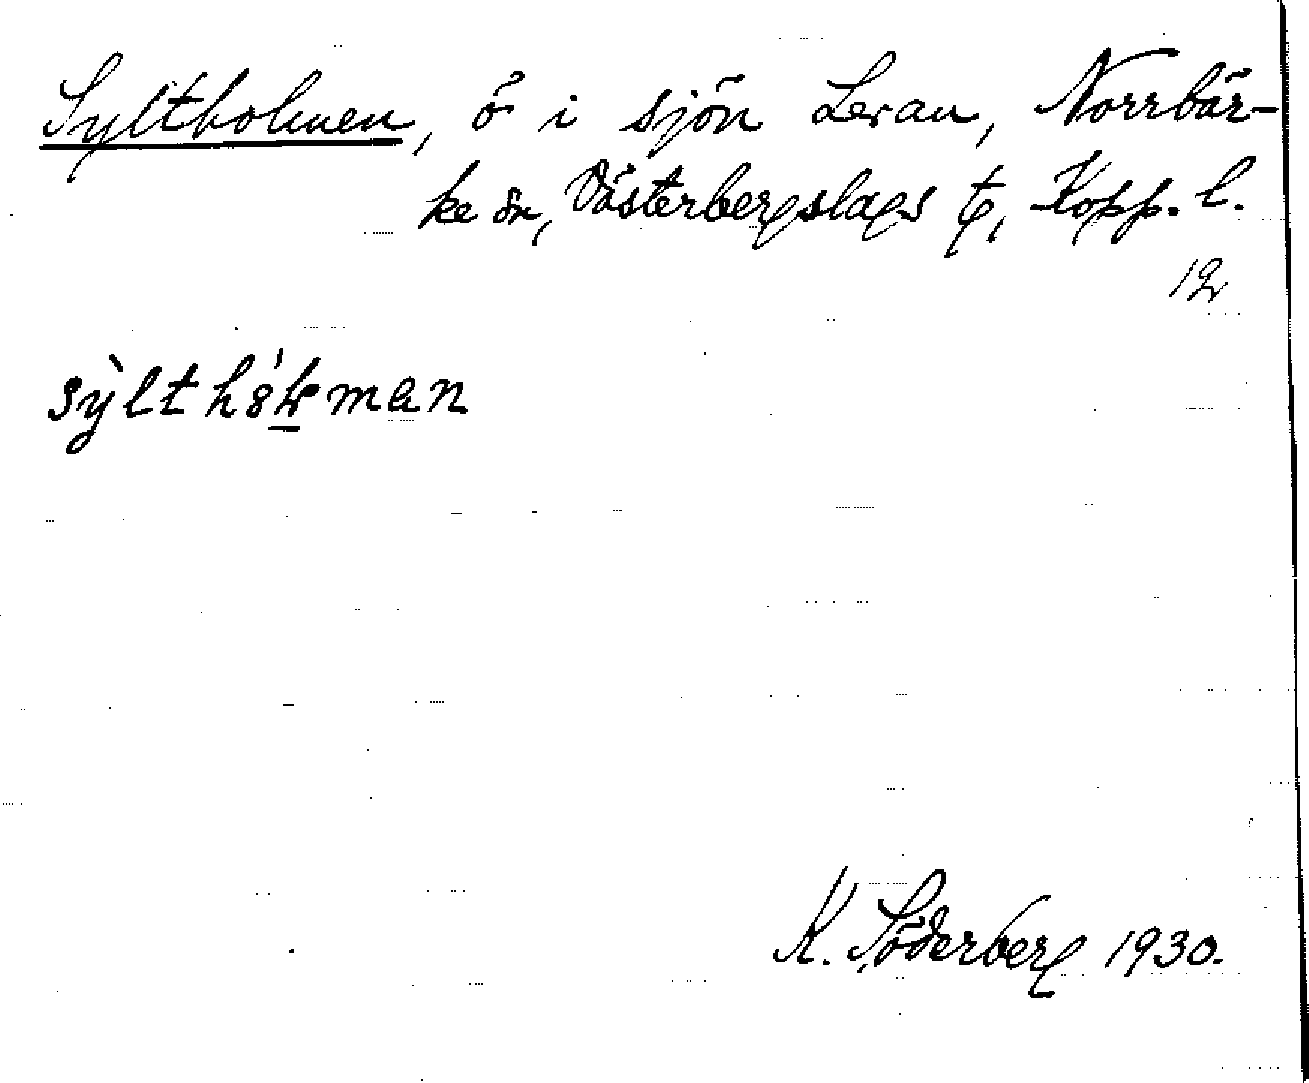 Syltholmen, ö i sjön Leran, Norrbär-
ke sn, Västerbergslags t, Kopp. l.
12
K. Söderberg 1930.